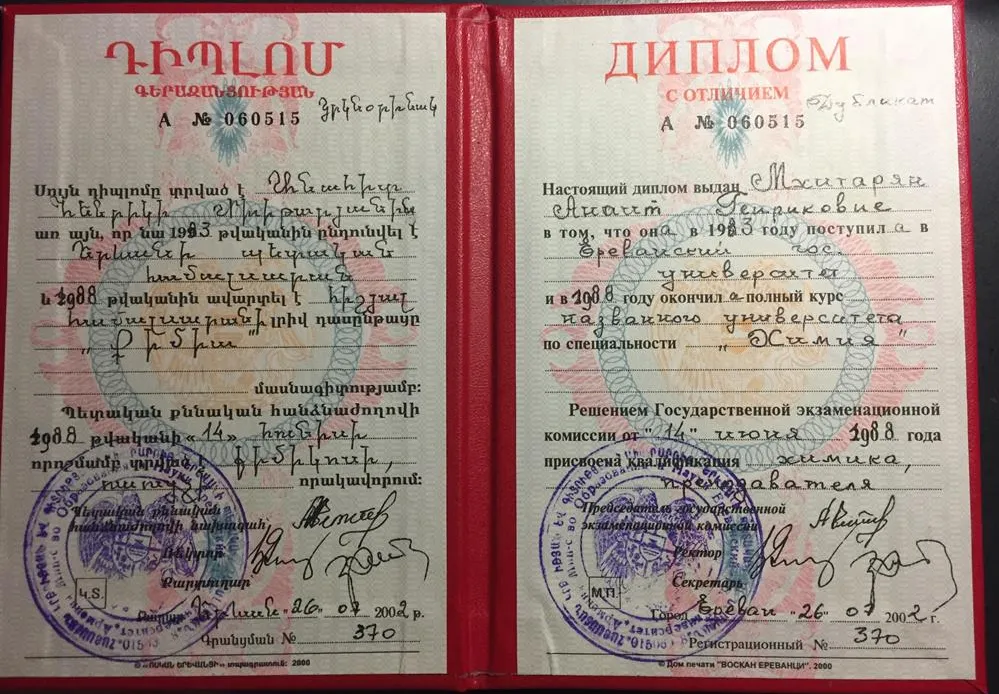 ԴԻՊԼՈՄ
ԳԵՐԱԶԱՆՑՈՒԹՅԱՆ
Կրկնօրինակ
А № 060515
Սույն դիպլոմը տրված է Անահիտ
Հենրիկի Մխիթարյանին
առ այն, որ նա 1983 թվականին ընդունվել է
Երևանի պետական
համալսարան
և 1988 թվականին ավարտել է հիշյալ
համալսարանի լրիվ դասընթացը
„ Քիմիա "
մասնագիտությամբ:
Պետական քննական հանձնաժողովի
1988 թվականի « 14 » հունիսի
որոշմամբ տրված է քիմիկոսի,
որակավորում:
Պետական քննական
հանձնաժողովի նախագահ
Ռեկտոր
Քարտուղար
Կ.Տ.
Քաղաք Երևան " 26 " 07 2002 թ.
Գրանցման № 370
© «ՈՍԿԱՆ ԵՐԵՎԱՆՑԻ» տպագրատուն: 2000
ДИПЛОМ
С ОТЛИЧИЕМ
Дубликат
А № 060515
Настоящий диплом выдан Мхитарян
Анаит Генриковне
в том, что она в 1983 году поступила в
Ереванский гос.
университет
и в 1988 году окончила полный курс
названного университета
по специальности „ Химия "
Решением Государственной экзаменационной
комиссии от " 14 " июня 1988 года
присвоена квалификация химика,
преподавателя
Председатель государственной
экзаменационной комиссии
Ректор
Секретарь
М.П.
Город Ереван " 26 " 07 2002 г.
Регистрационный № 370
© Дом печати "ВОСКАН ЕРЕВАНЦИ". 2000